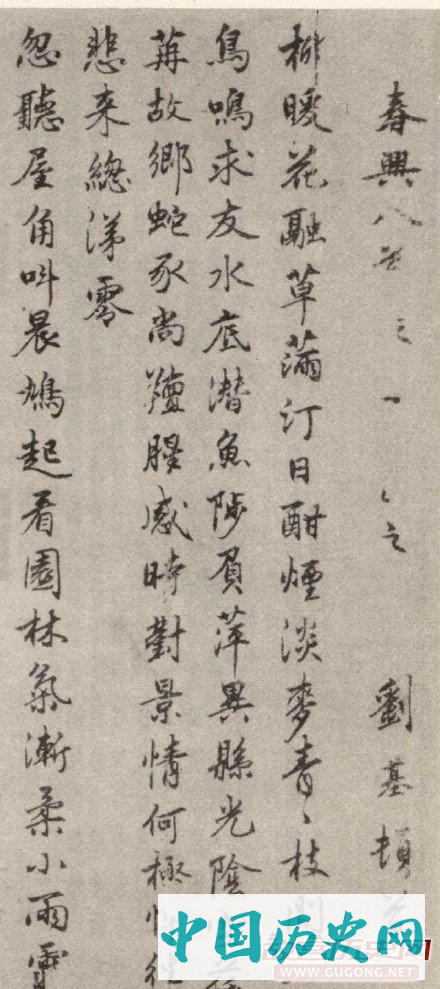 春興八首
劉基頓
柳暖花融草滿汀日酣煙淡麥青〻枝
鳥鳴求友水底潛魚陟負萍異縣光陰
苒故鄉蛇豕尚羶腥感時對景情何極
悲来總涕零
忽聽屋角叫晨鳩起看園林氣漸柔小雨
中国历史网
WWW.GUGONG.NET